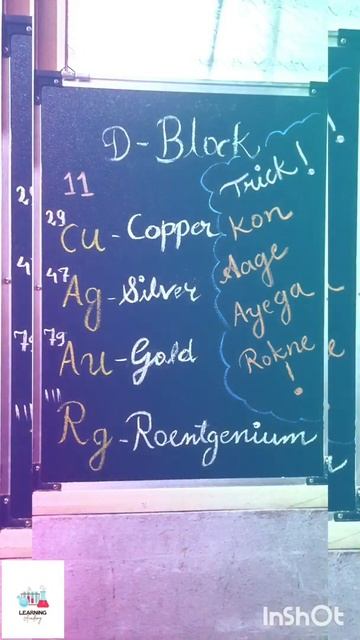 D-Block
11
Trick!
29 Cu - Copper
Kon
47 Ag - Silver
Aage
79 Au - Gold
Ayega
Rokne
!
111 Rg - Roentgenium
LEARNING
Academy
InShOt